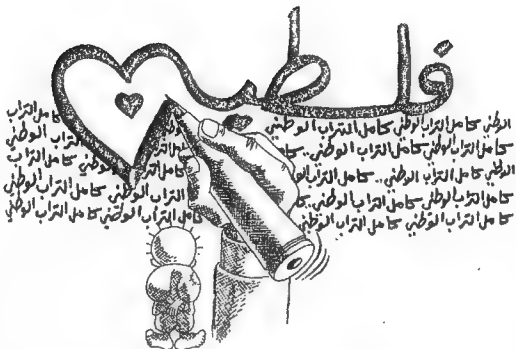 فلسطين
الوطني كامل التراب الوطني كامل التراب الوطني كامل التراب
كامل التراب الوطني كامل التراب الوطني .. كامل التراب الوطني
الوطني كامل التراب الوطني .. كامل التراب الو كامل التراب الوطني كامل التراب
كامل التراب الوطني كامل التراب الوطني .. كا التراب الوطني كامل التراب الوطني
كامل التراب الوطني كامل التراب الوطني كامل التراب الوطني كامل التراب الوطني